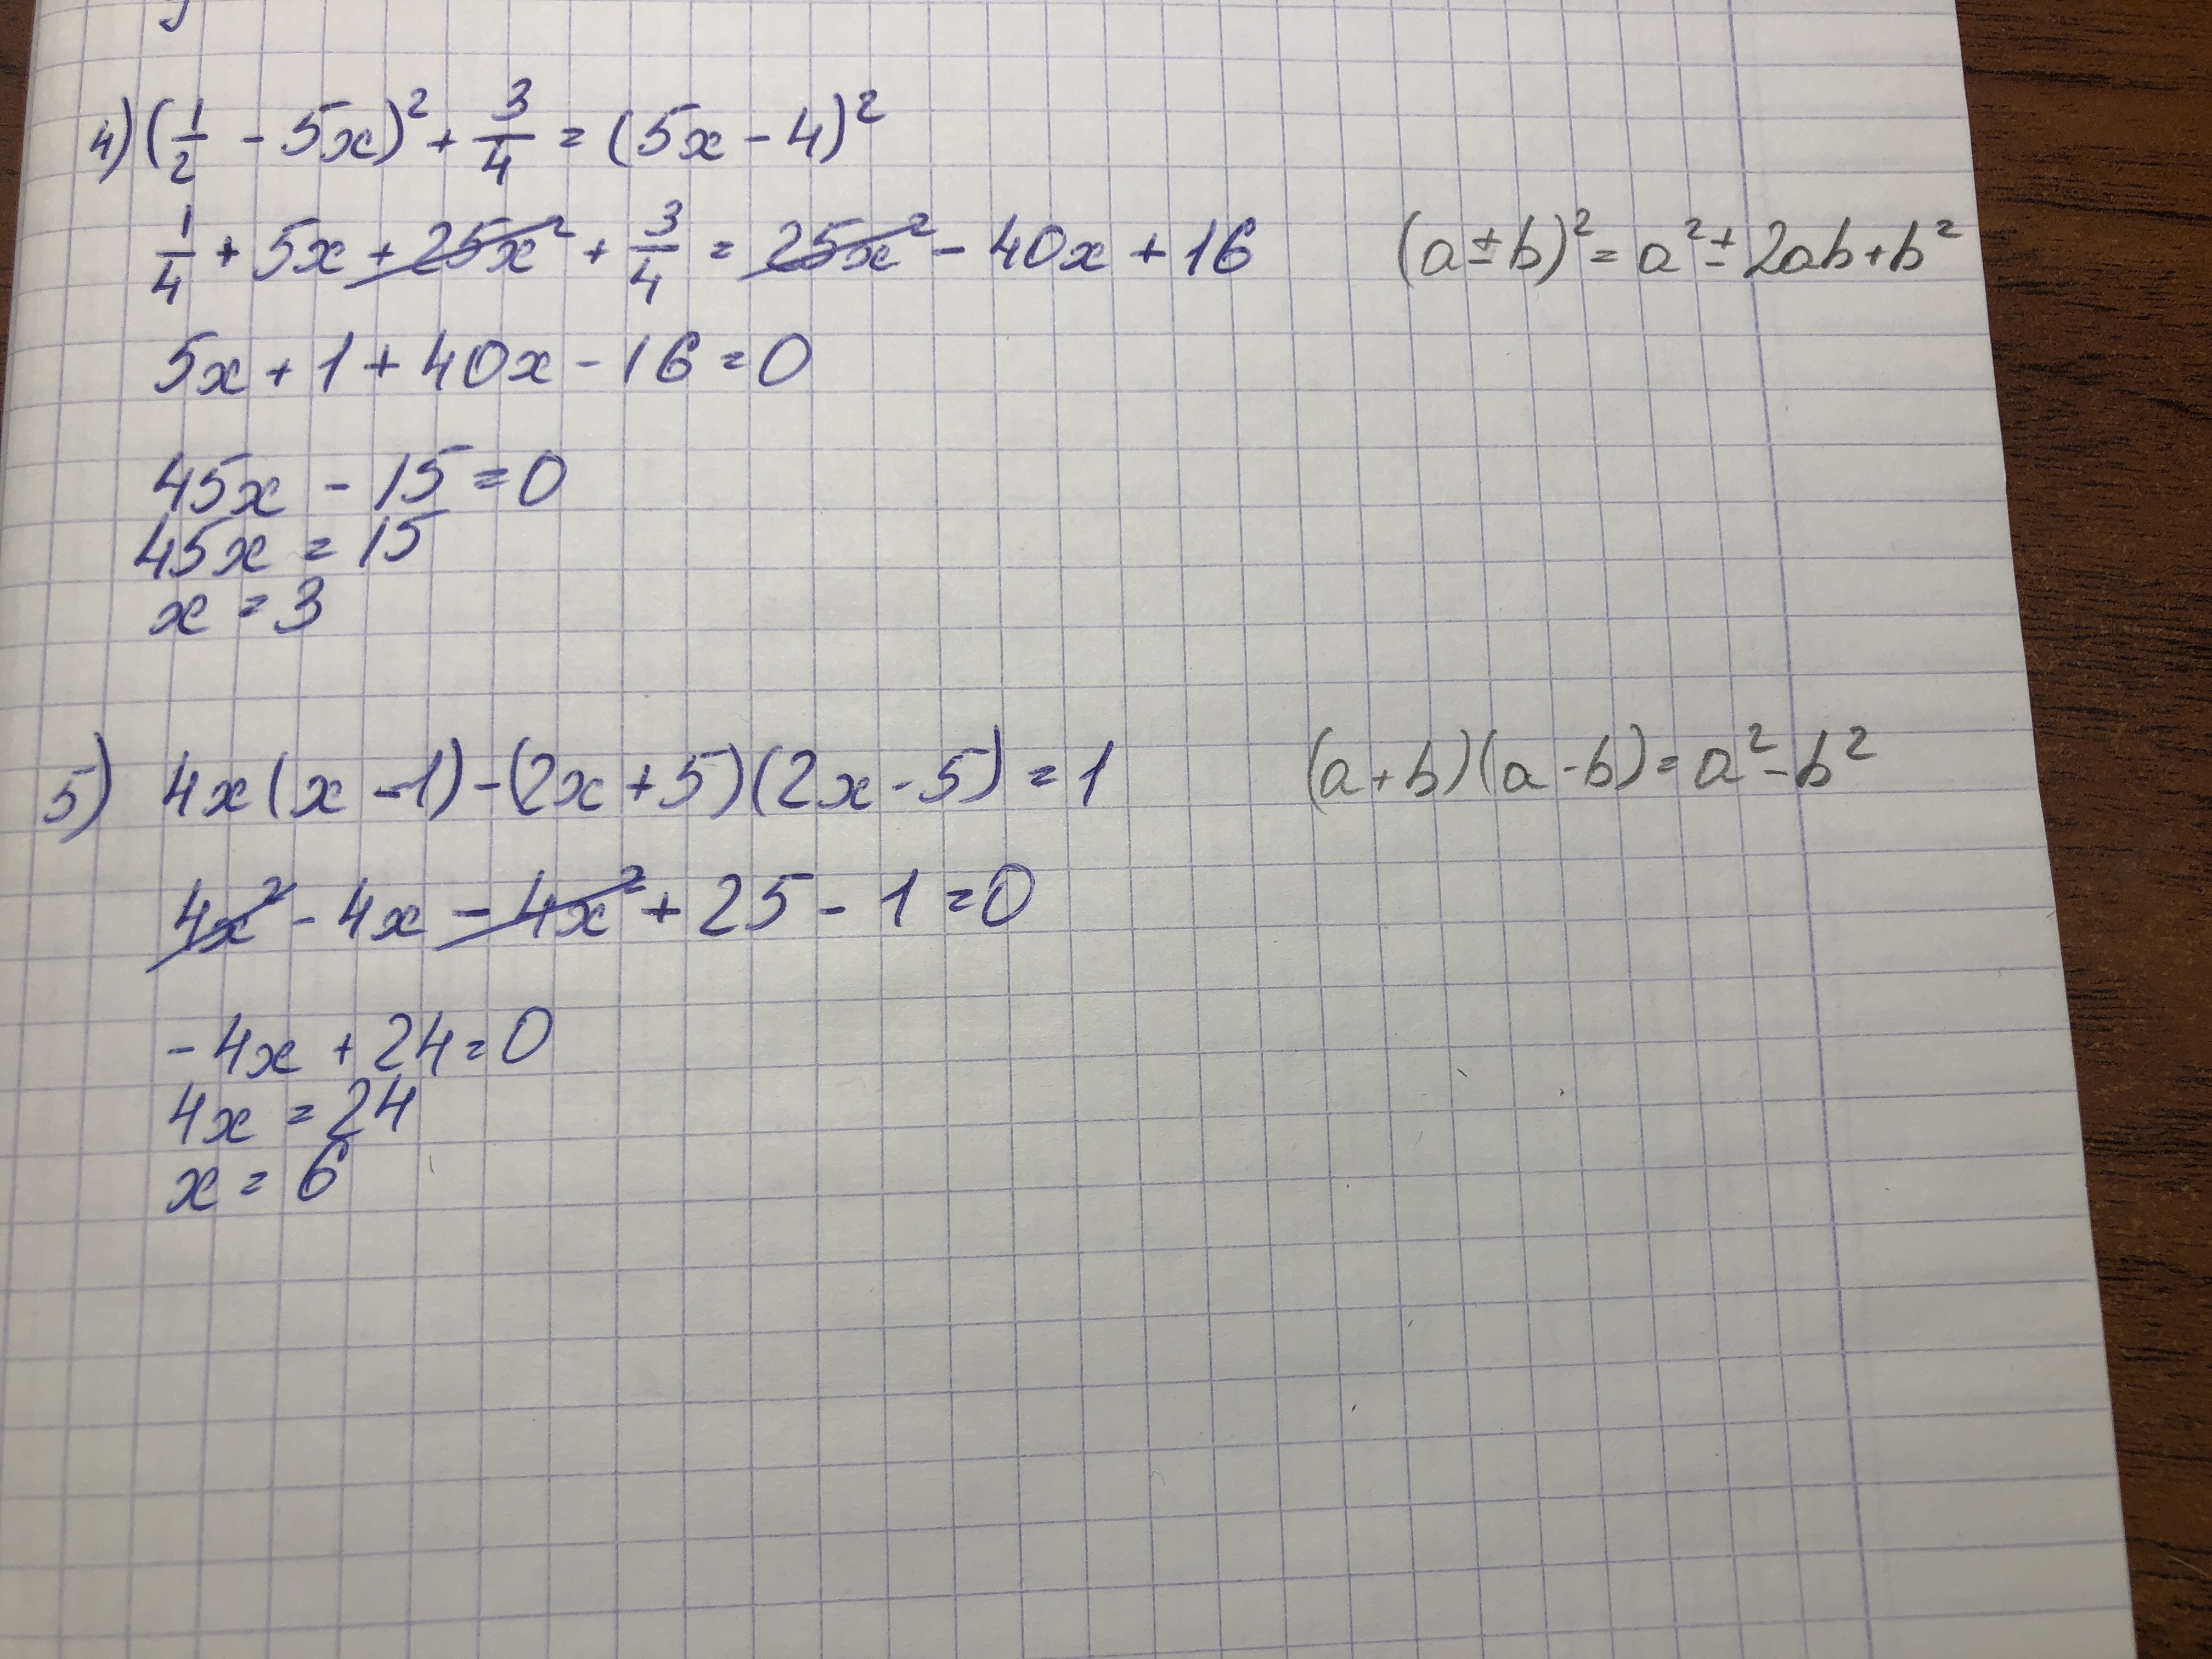 4) (1/2 - 5x)² + 3/4 = (5x - 4)²
1/4 + 5x + 25x² + 3/4 = 25x² - 40x + 16
(a ± b)² = a² ± 2ab + b²
5x + 1 + 40x - 16 = 0
45x - 15 = 0
45x = 15
x = 3
5) 4x(x - 1) - (2x + 5)(2x - 5) = 1
(a + b)(a - b) = a² - b²
4x² - 4x - 4x² + 25 - 1 = 0
-4x + 24 = 0
4x = 24
x = 6